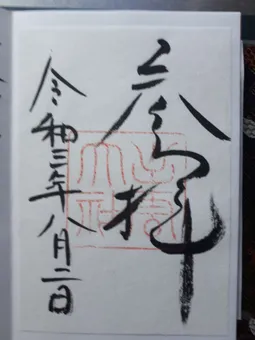 奉拝
令和三年八月二日